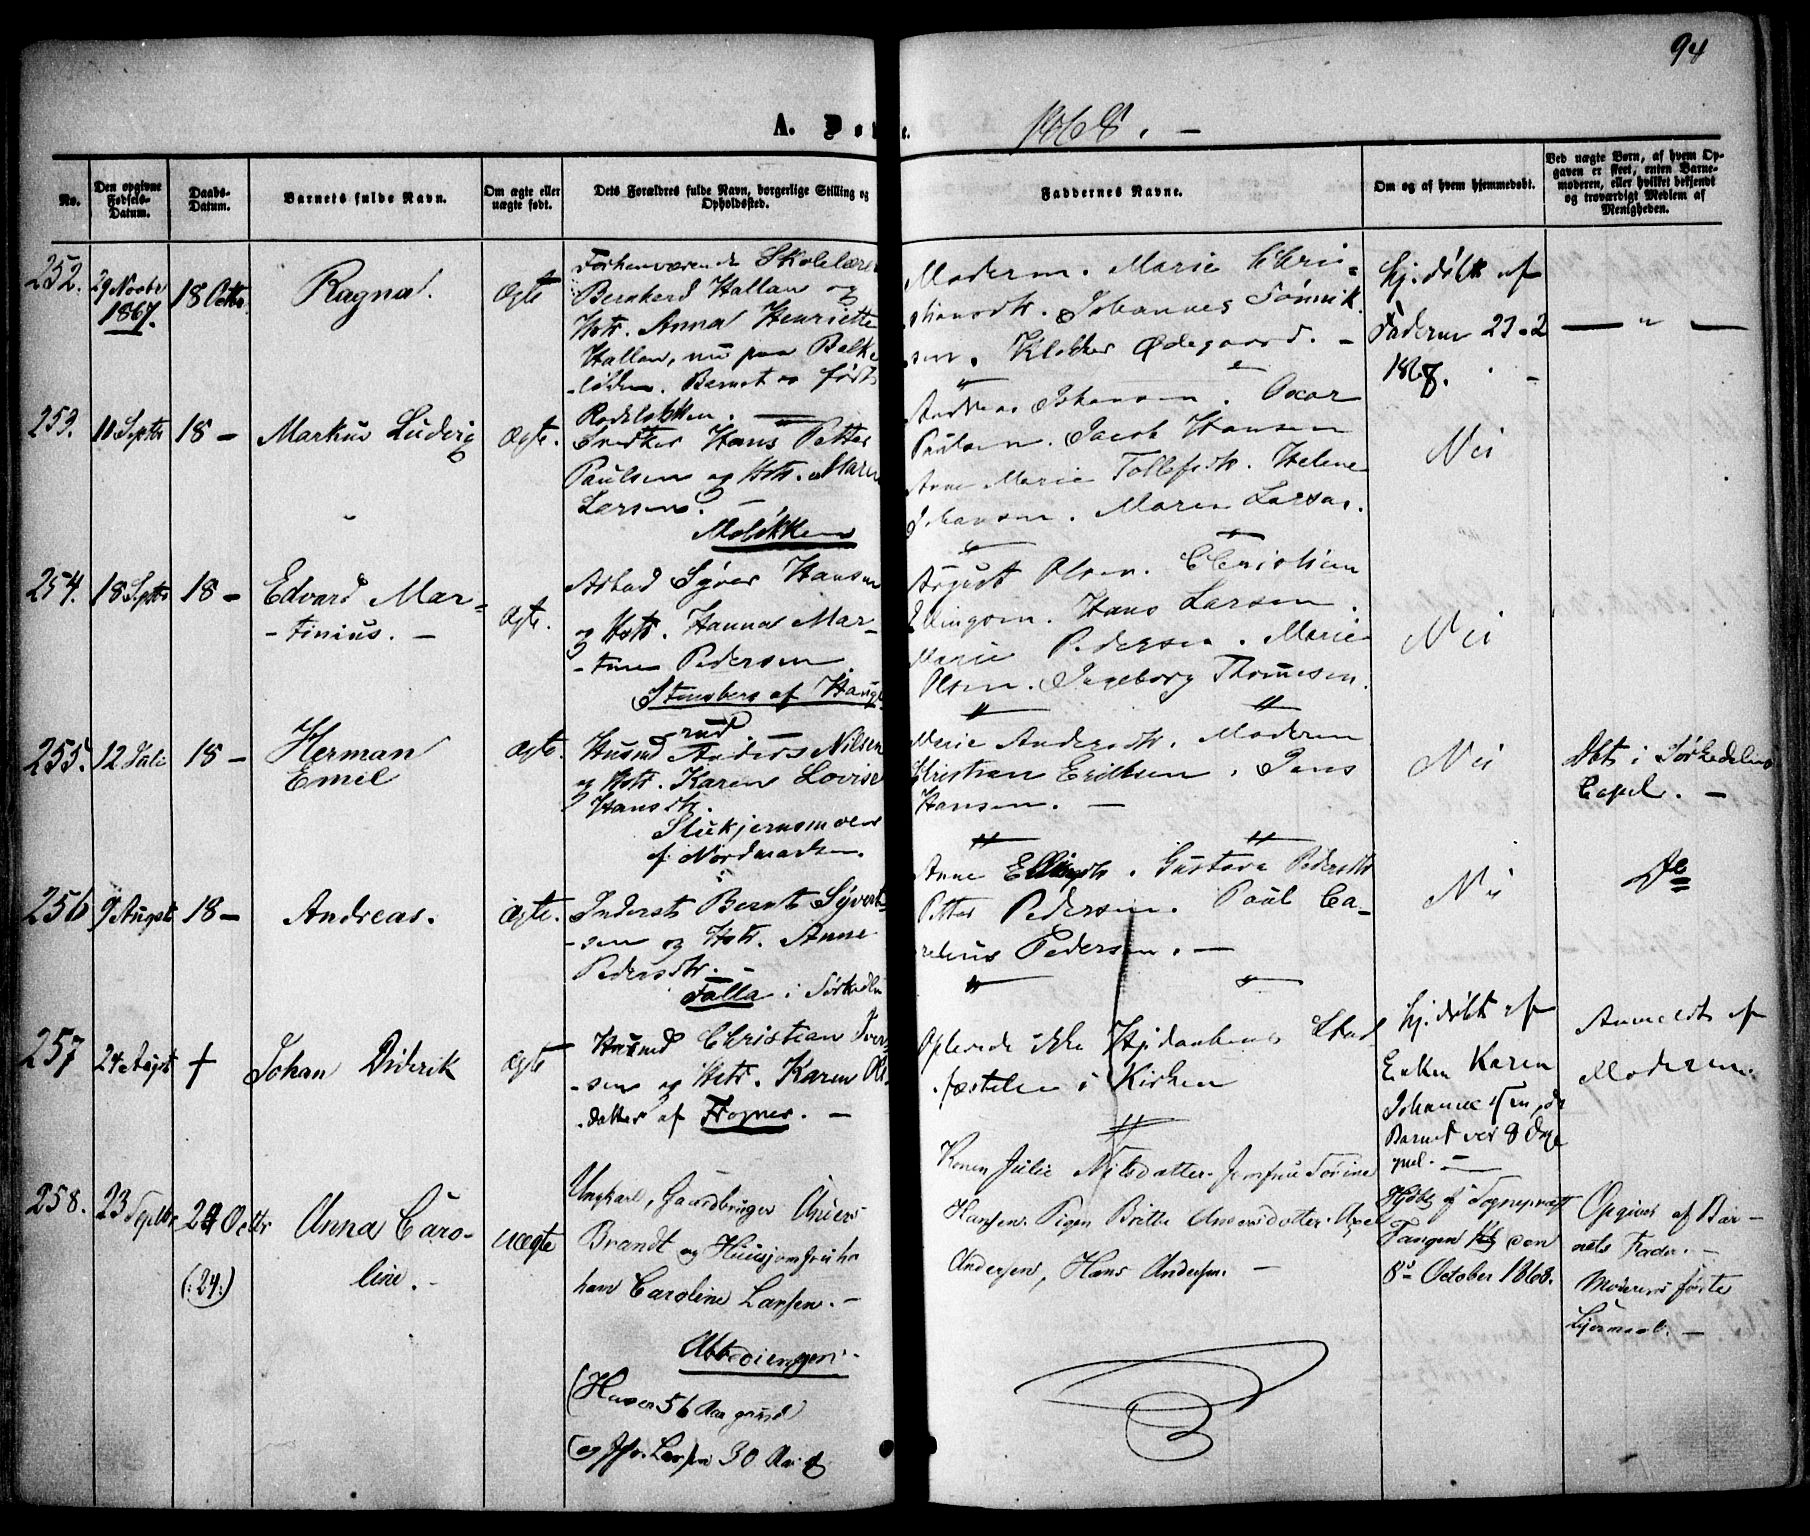 94
A. Dø e. 1868. –
No.
Den opgivne Fødsels-Datum.
Daabs-Datum.
Barnets fulde Navn.
Om ægte eller uægte født.
Dets Forældres fulde Navn, borgerlige Stilling og Opholdssted.
Faddernes Navne.
Om og af hvem hjemmedøbt.
Ved uægte Børn, af hvem Opgaven er skeet, enten Barnemoderen, eller hvilket bekjendt og troværdigt Medlem af Menigheden.
252.
29 Novbr
1867.
18 Octbr
Ragna.
Ægte
Forhenværende Skolelærer
Bernhard Hallan og
Hstr. Anna Henriette
Hallan, nu paa Balke
-løkken. Barnet er født
Rodeløkken. –
Moderen. Marie Chri=
stiansdtr. Johannes
sen. Klokker Ødegaard. –
Hj. døbt af
Faderen 23-2
1868. –
— " —
253.
11 Septbr
18 –
Markus Ludvig
Ægte.
Snedker Hans Petter
Paulsen og Hstr. Maren
Larsen.
Andreas Johansen. Oscar
Paulsen. Jacob Hansen
Anne Marie Tollefsdtr. Helene
Johansen. Maren Larsen.
Nei
254.
18 Septbr
18 –
Edvard Mar=
-tinius. –
Ægte.
Arbeid Syver Hansen
og Hstr. Hanna Mar-
-tine Pedersen.
Stensberg af Haugerud
August Olsen. Christian
Hans Larsen.
Marie Pedersen. Marie
Olsen. Ingeborg Thomesen.
Nei
255.
12 Juli
18 –
Herman
Emil
Ægte.
Husmd Anders Nilsen
og Hstr. Karen Lovise
Hansdtr.
af Nordmarken.
Marie Andersdtr. Moderen
Christian Eriksen. Jens
Hansen. –
Nei
Dbt i Sørkedalens
Capel. –
256
9 August
18 –
Andreas.
Ægte.
Inderst Bernt Syvert
-sen og Hstr. Anne
Pedersdtr. –
Falla i Sørkedln
Anne Gustava Pedersdtr
Petter Pedersen. Paul Ca-
relius Pedersen. –
Nei
Do
257
24 August
†
Johan Diderik
Ægte
Husmd Christian Iver
-sen og Hstr. Karen Ols
-datter af Frogner. –
Oplevede ikke Stad
-fæstelse i Kirken
Hj. døbt af
Enken Karen
Johannesen, da
Barnet var 8 Dage
gml. –
Anmeldt af
Moderen.
258.
23 Septbr
24 Octbr
(:24:)
Anna Caro-
line. –
uægte
Ungkarl, Gaardbruger Anders
Brandt og Huusjomfru
Caroline Larsen. –
Abbediengen. –
(Han er 56 Aar gammel
og Jfr. Larsen 30 Aar
Konen Julie Nilsdatter. Jomfru Sørine
Hansen. Pigen Britte Andersdatter. Axel
Andersen, Hans Andersen. –
Hjdbt af Sognepræst
Tangen den
8de October 1868.
Opgivet af Bar-
nets Fader. –
Moderens første
Leiermaal. –